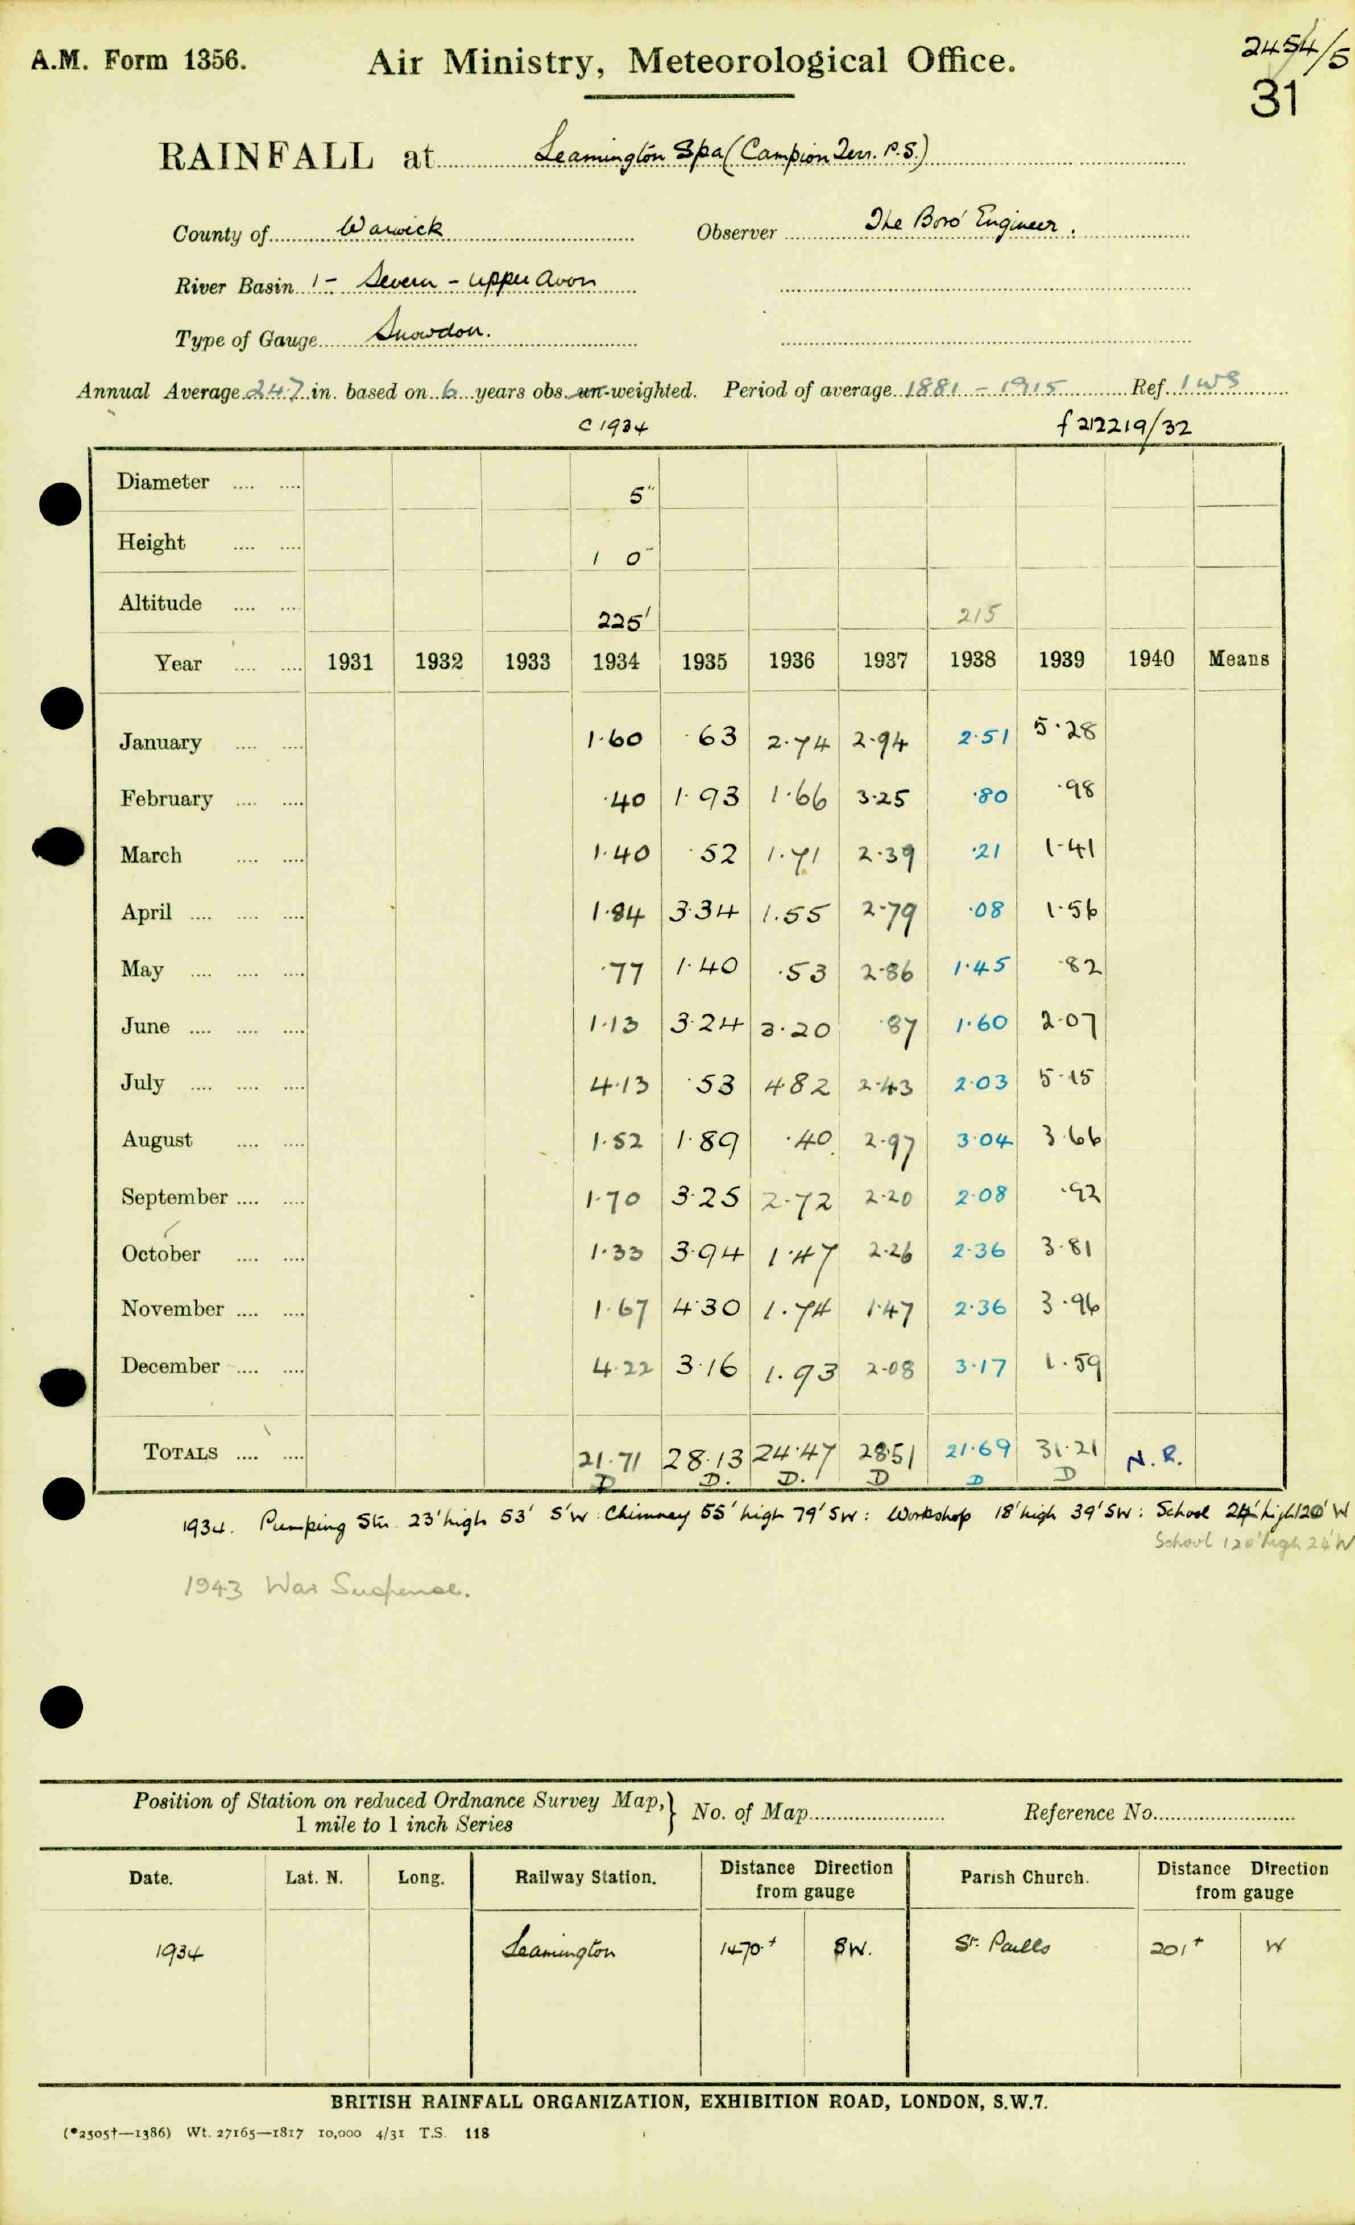 A.M. Form 1356. Air Ministry, Meteorological Office. 2454/5
31
RAINFALL at Leamington Spa (Campion Terr. P.S.)
County of Warwick Observer The Boro' Engineer.
River Basin 1 - Severn - Upper Avon
Type of Gauge Snowdon.
Annual Average 24.7 in. based on 6 years obs. un-weighted. Period of average 1881 - 1915 Ref. IWS
C 1934 f 212219/32
Diameter .... .... 5"
Height .... .... 1 0"
Altitude .... .... 225' 215
Year .... .... 1931 1932 1933 1934 1935 1936 1937 1938 1939 1940 Means
January .... .... 1.60 .63 2.74 2.94 2.51 5.28
February .... .... .40 1.93 1.66 3.25 .80 .98
March .... .... 1.40 .52 1.71 2.39 .21 1.41
April .... .... .... 1.84 3.34 1.55 2.79 .08 1.56
May .... .... .... .77 1.40 .53 2.86 1.45 .82
June .... .... .... 1.13 3.24 3.20 .87 1.60 2.07
July .... .... .... 4.13 .53 4.82 2.43 2.03 5.15
August .... .... 1.52 1.89 .40 2.97 3.04 3.66
September .... .... 1.70 3.25 2.72 2.20 2.08 .92
October .... .... 1.33 3.94 1.47 2.26 2.36 3.81
November .... .... 1.67 4.30 1.74 1.47 2.36 3.96
December .... .... 4.22 3.16 1.93 2.08 3.17 1.59
TOTALS .... .... 21.71 28.13 24.47 28.51 21.69 31.21 N.R.
D D. D. D D D
1934. Pumping Stn. 23' high 53' S'W: Chimney 55' high 79' SW: Workshop 18' high 39' SW: School 24' high 120' W
School 120' high 24' W
1943 War Suspense.
Position of Station on reduced Ordnance Survey Map, } No. of Map Reference No.
1 mile to 1 inch Series
Date. Lat. N. Long. Railway Station. Distance Direction from gauge Parish Church. Distance Direction from gauge
1934 Leamington 1470+ SW. St. Paul's 201+ W
BRITISH RAINFALL ORGANIZATION, EXHIBITION ROAD, LONDON, S.W.7.
(*2505†—1386) Wt. 27165—1817 10,000 4/31 T.S. 118